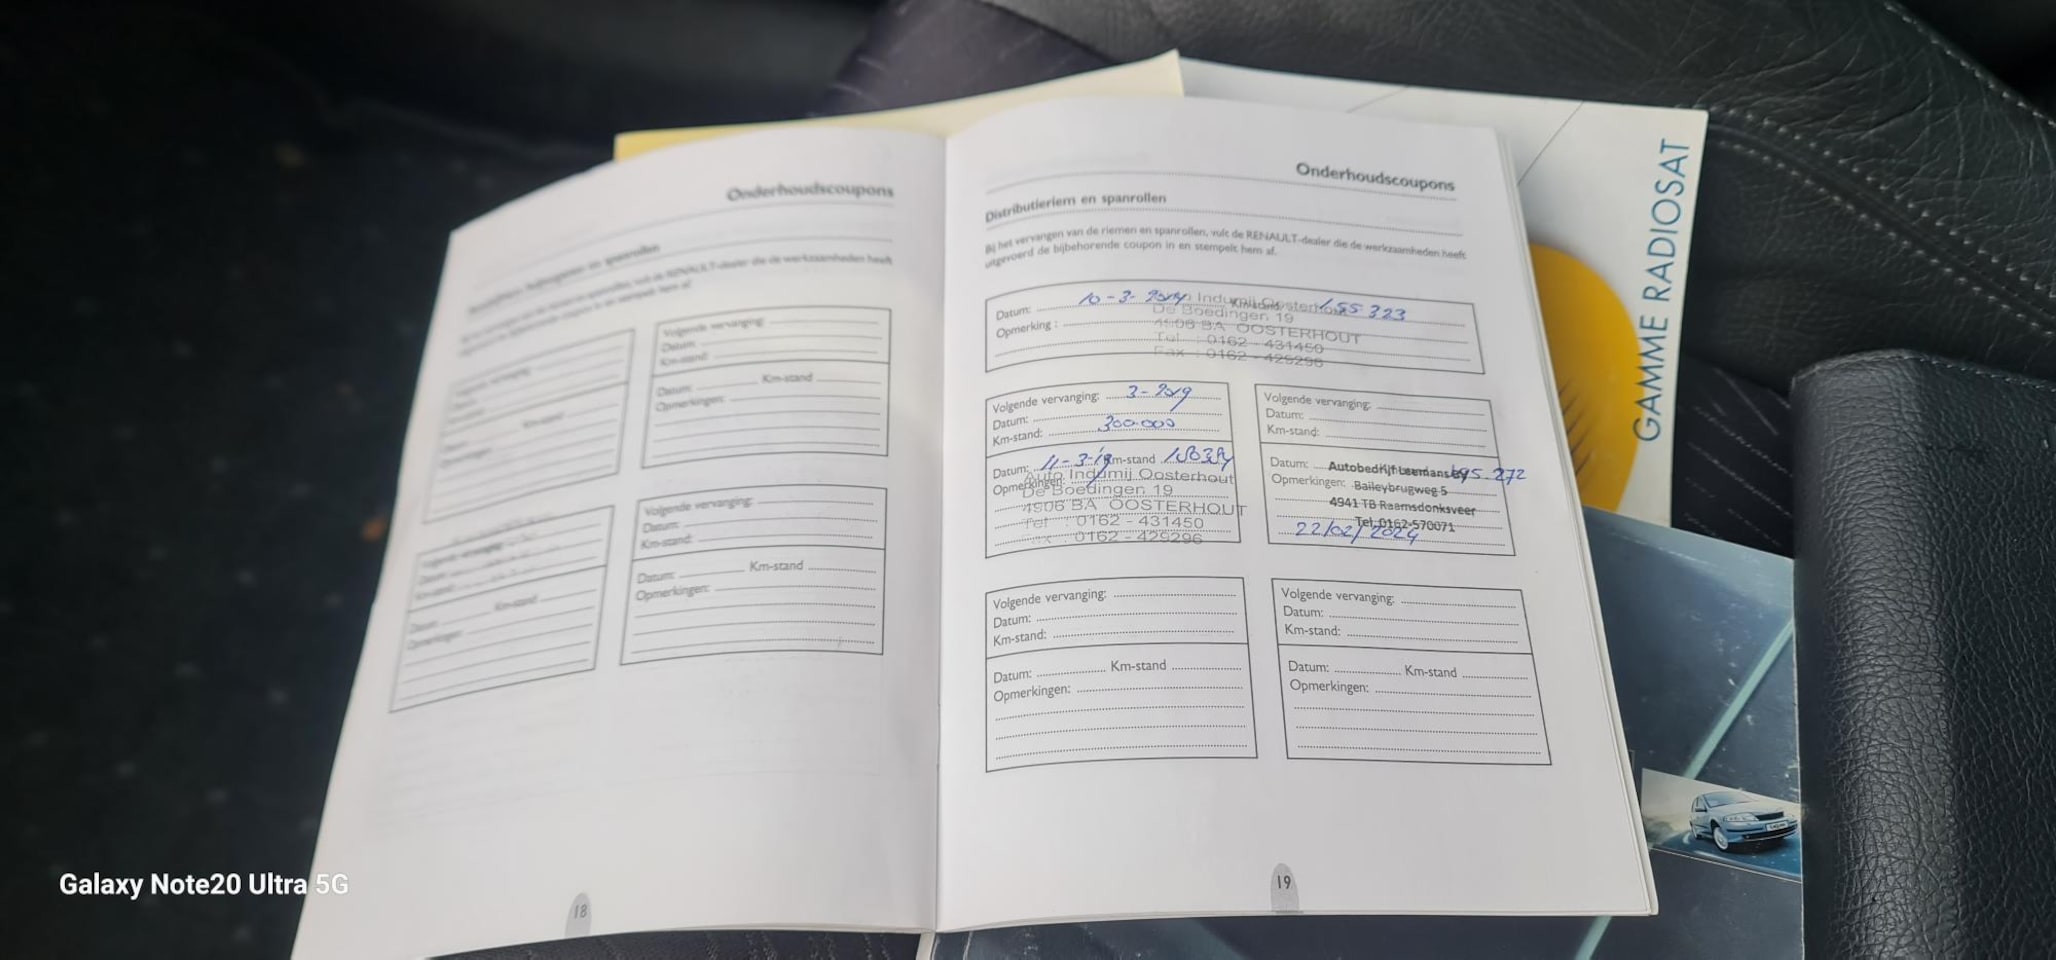 Onderhoudscoupons
Volgende vervanging:
Datum:
Km-stand:
Datum: Km-stand
Opmerkingen:
Km-stand
Volgende vervanging:
Datum:
Km-stand:
Datum: Km-stand
Opmerkingen:
Km-stand
18
Onderhoudscoupons
Distributieriem en spanrollen
Bij het vervangen van de riemen en spanrollen, vult de RENAULT-dealer die de werkzaamheden heeft
uitgevoerd de bijbehorende coupon in en stempelt hem af.
Datum: 10-3-2014 Indumij Oosterhout 155 323
De Boedingen 19
Opmerking: 4906 BA OOSTERHOUT
Tel : 0162 - 431450
Fax : 0162 - 429296
Volgende vervanging: 3-2019
Datum:
Km-stand: 300.000
Datum: 11-3-19 Km-stand
Auto Indumij Oosterhout
Opmerkingen:
De Boedingen 19
4906 BA OOSTERHOUT
Tel : 0162 - 431450
Fax : 0162 - 429296
Volgende vervanging:
Datum:
Km-stand:
Datum: Autobedrijf Leemans BV 195.272
Opmerkingen: Baileybrugweg 5
4941 TB Raamsdonksveer
Tel. 0162-570071
22/02/2024
Volgende vervanging:
Datum:
Km-stand:
Datum: Km-stand
Opmerkingen:
Volgende vervanging:
Datum:
Km-stand:
Datum: Km-stand
Opmerkingen:
19
GAMME RADIOSAT
Galaxy Note20 Ultra 5G